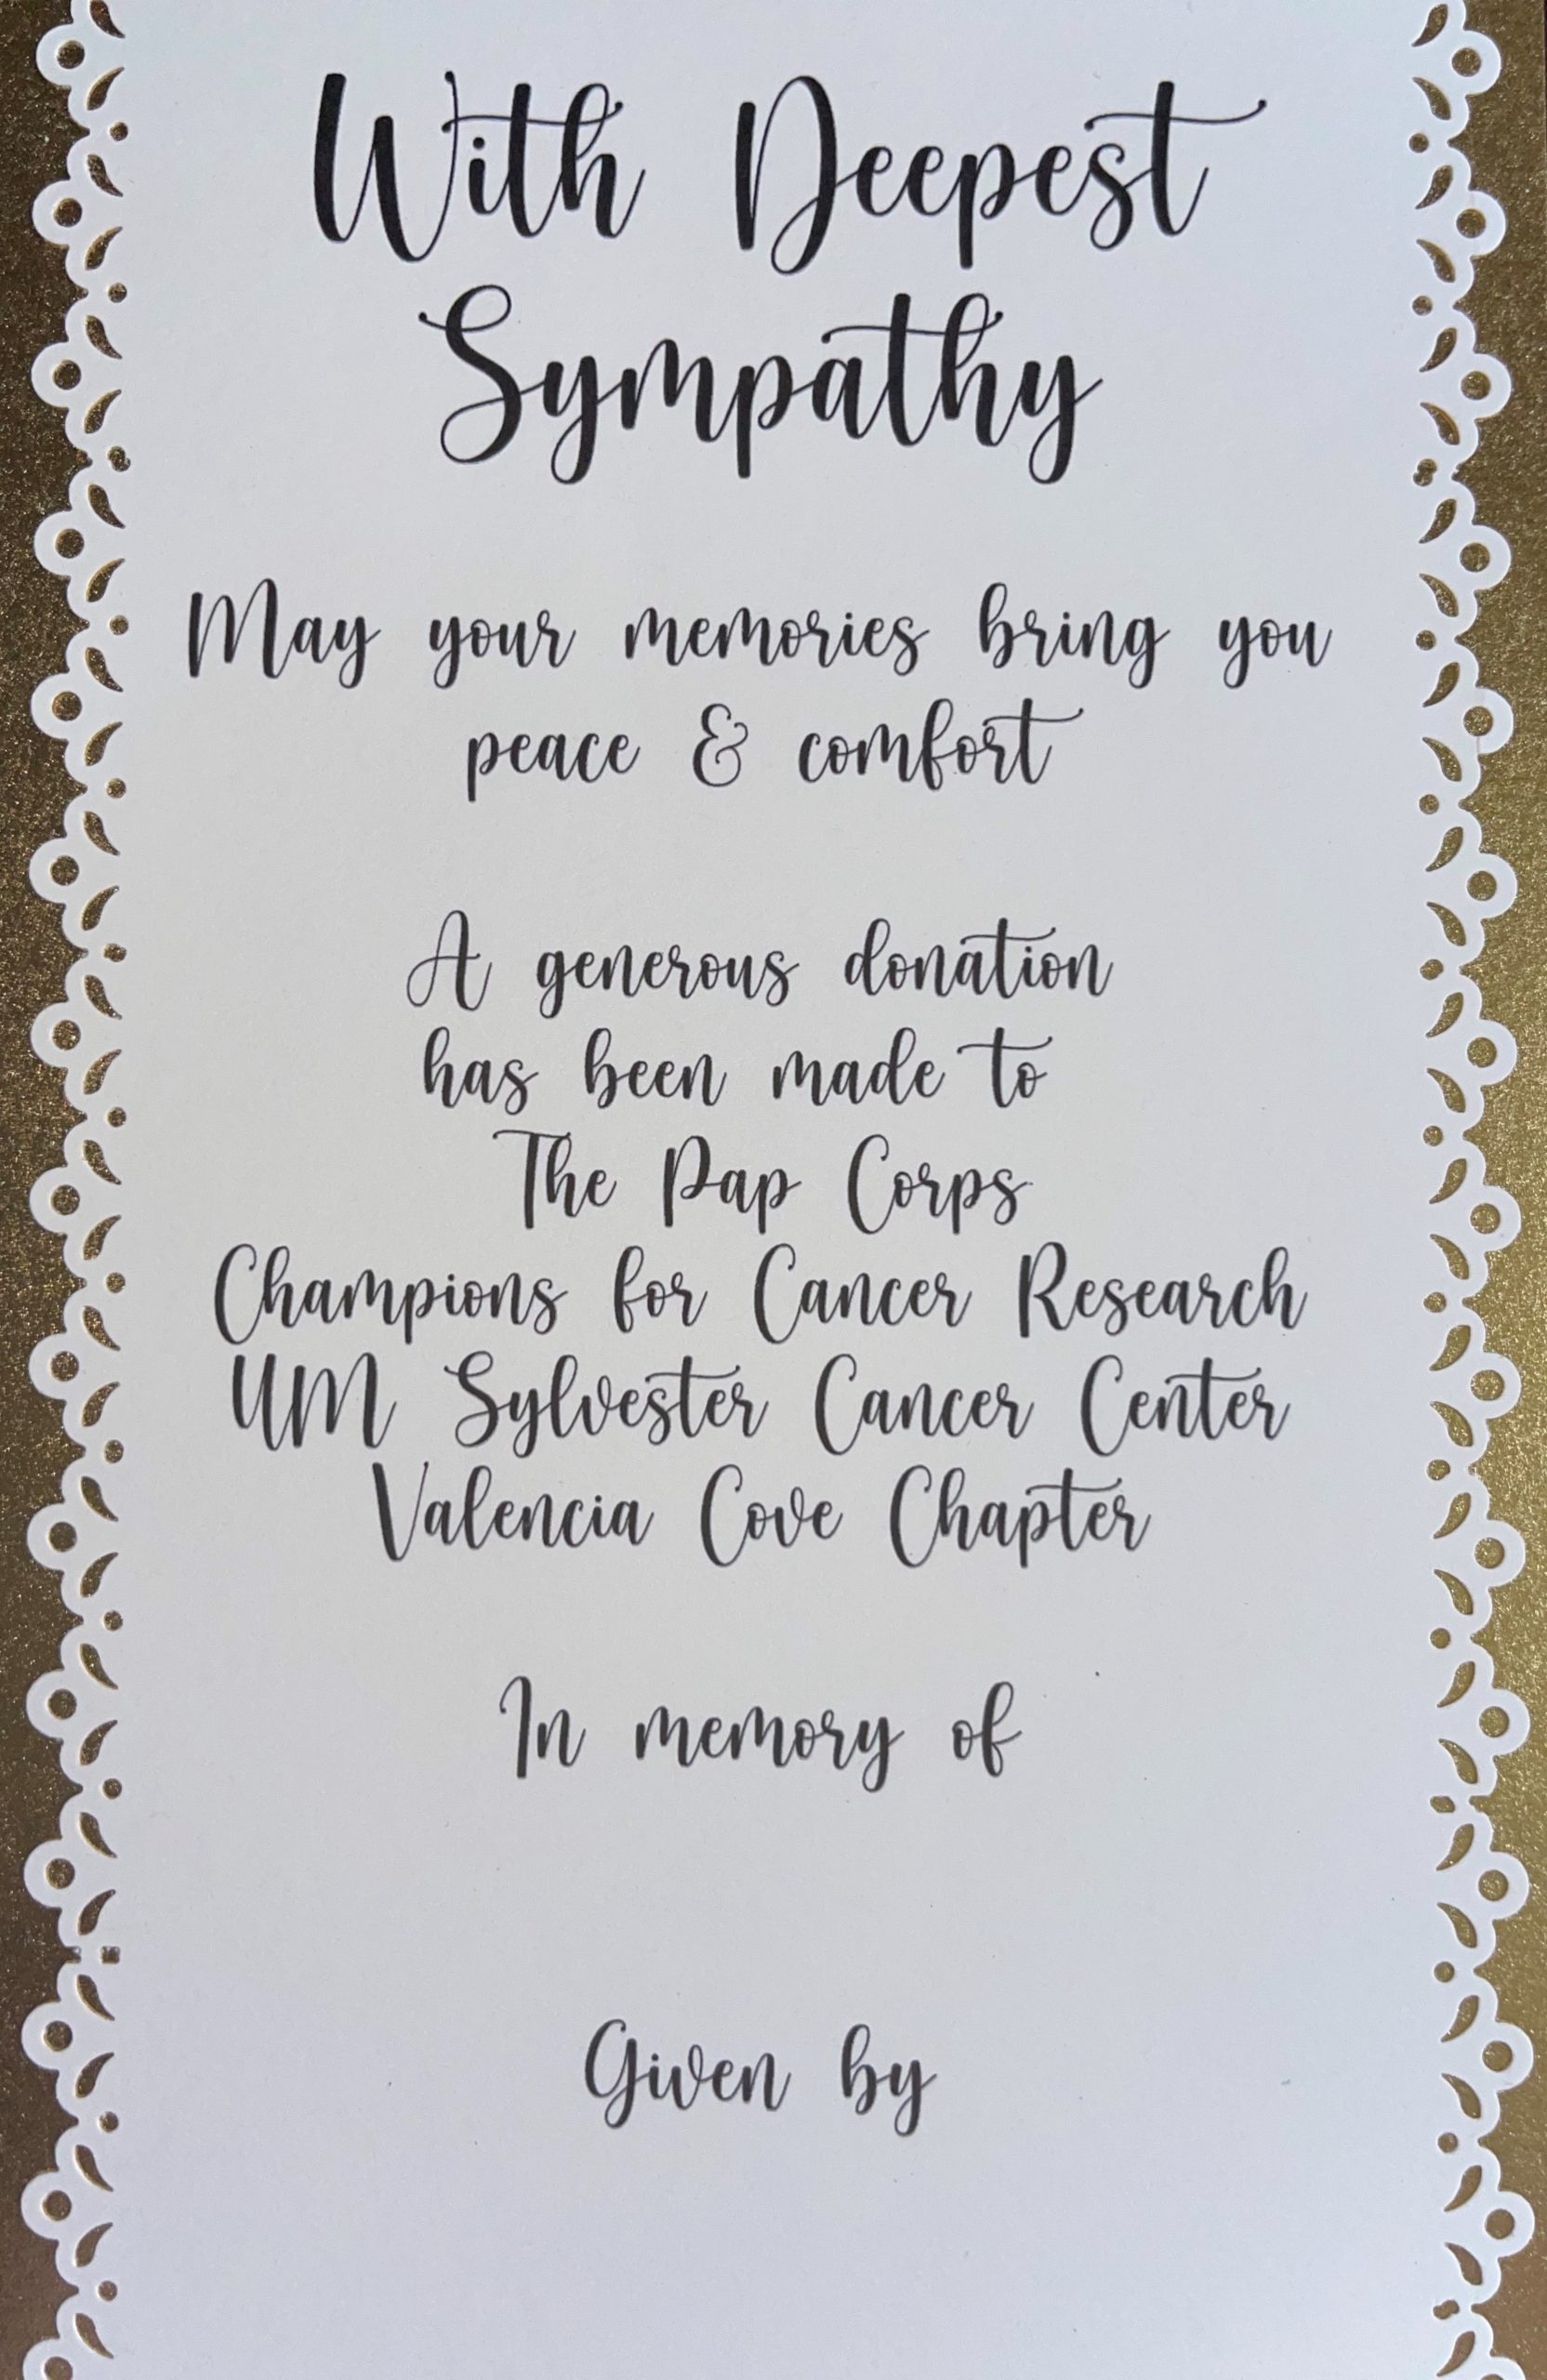 With Deepest
Sympathy
May your memories bring you
peace & comfort
A generous donation
has been made to
The Pap Corps
Champions for Cancer Research
UM Sylvester Cancer Center
Valencia Cove Chapter
In memory of
Given by